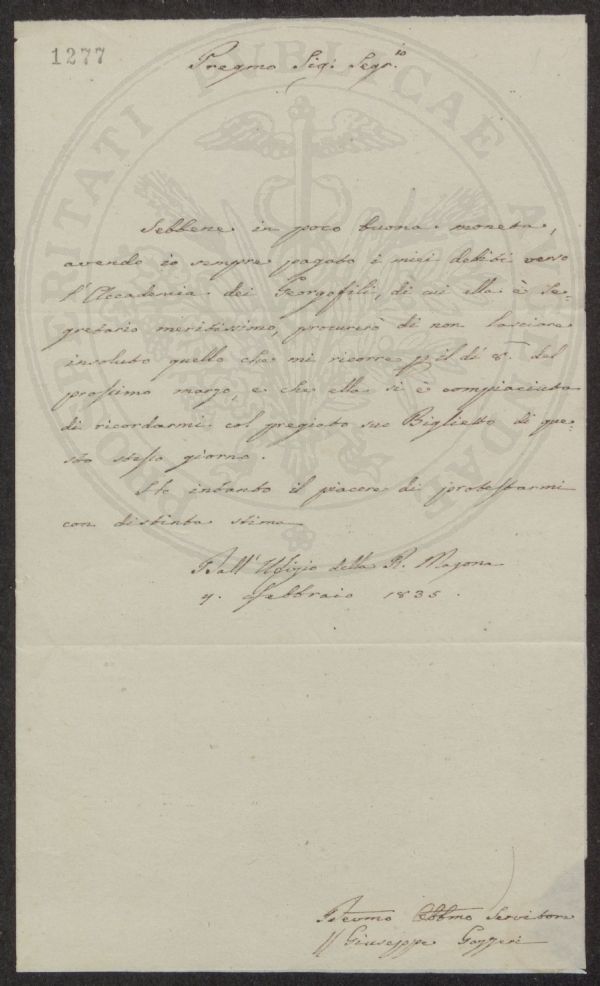 1277
Pregmo Sig: Segr.io
Sebbene in poco buona moneta,
avendo io sempre pagato i miei debiti verso
l'Accademia dei Georgofili, di cui ella è Se-
gretario meritissimo, procurerò di non lasciare
insoluto quello che mi ricorre p il dì 8. del
prossimo marzo, e che ella si è compiaciuta
di ricordarmi col pregiato suo Biglietto di que-
sto stesso giorno.
Ho intanto il piacere di protestarmi
con distinta stima
Dall' Ufizio della R. Magona
febbraio 1835.
Devmo Obbmo Servitore
Giuseppe Gazzeri
PROSPERITATI PUBLICAE AUGENDAE